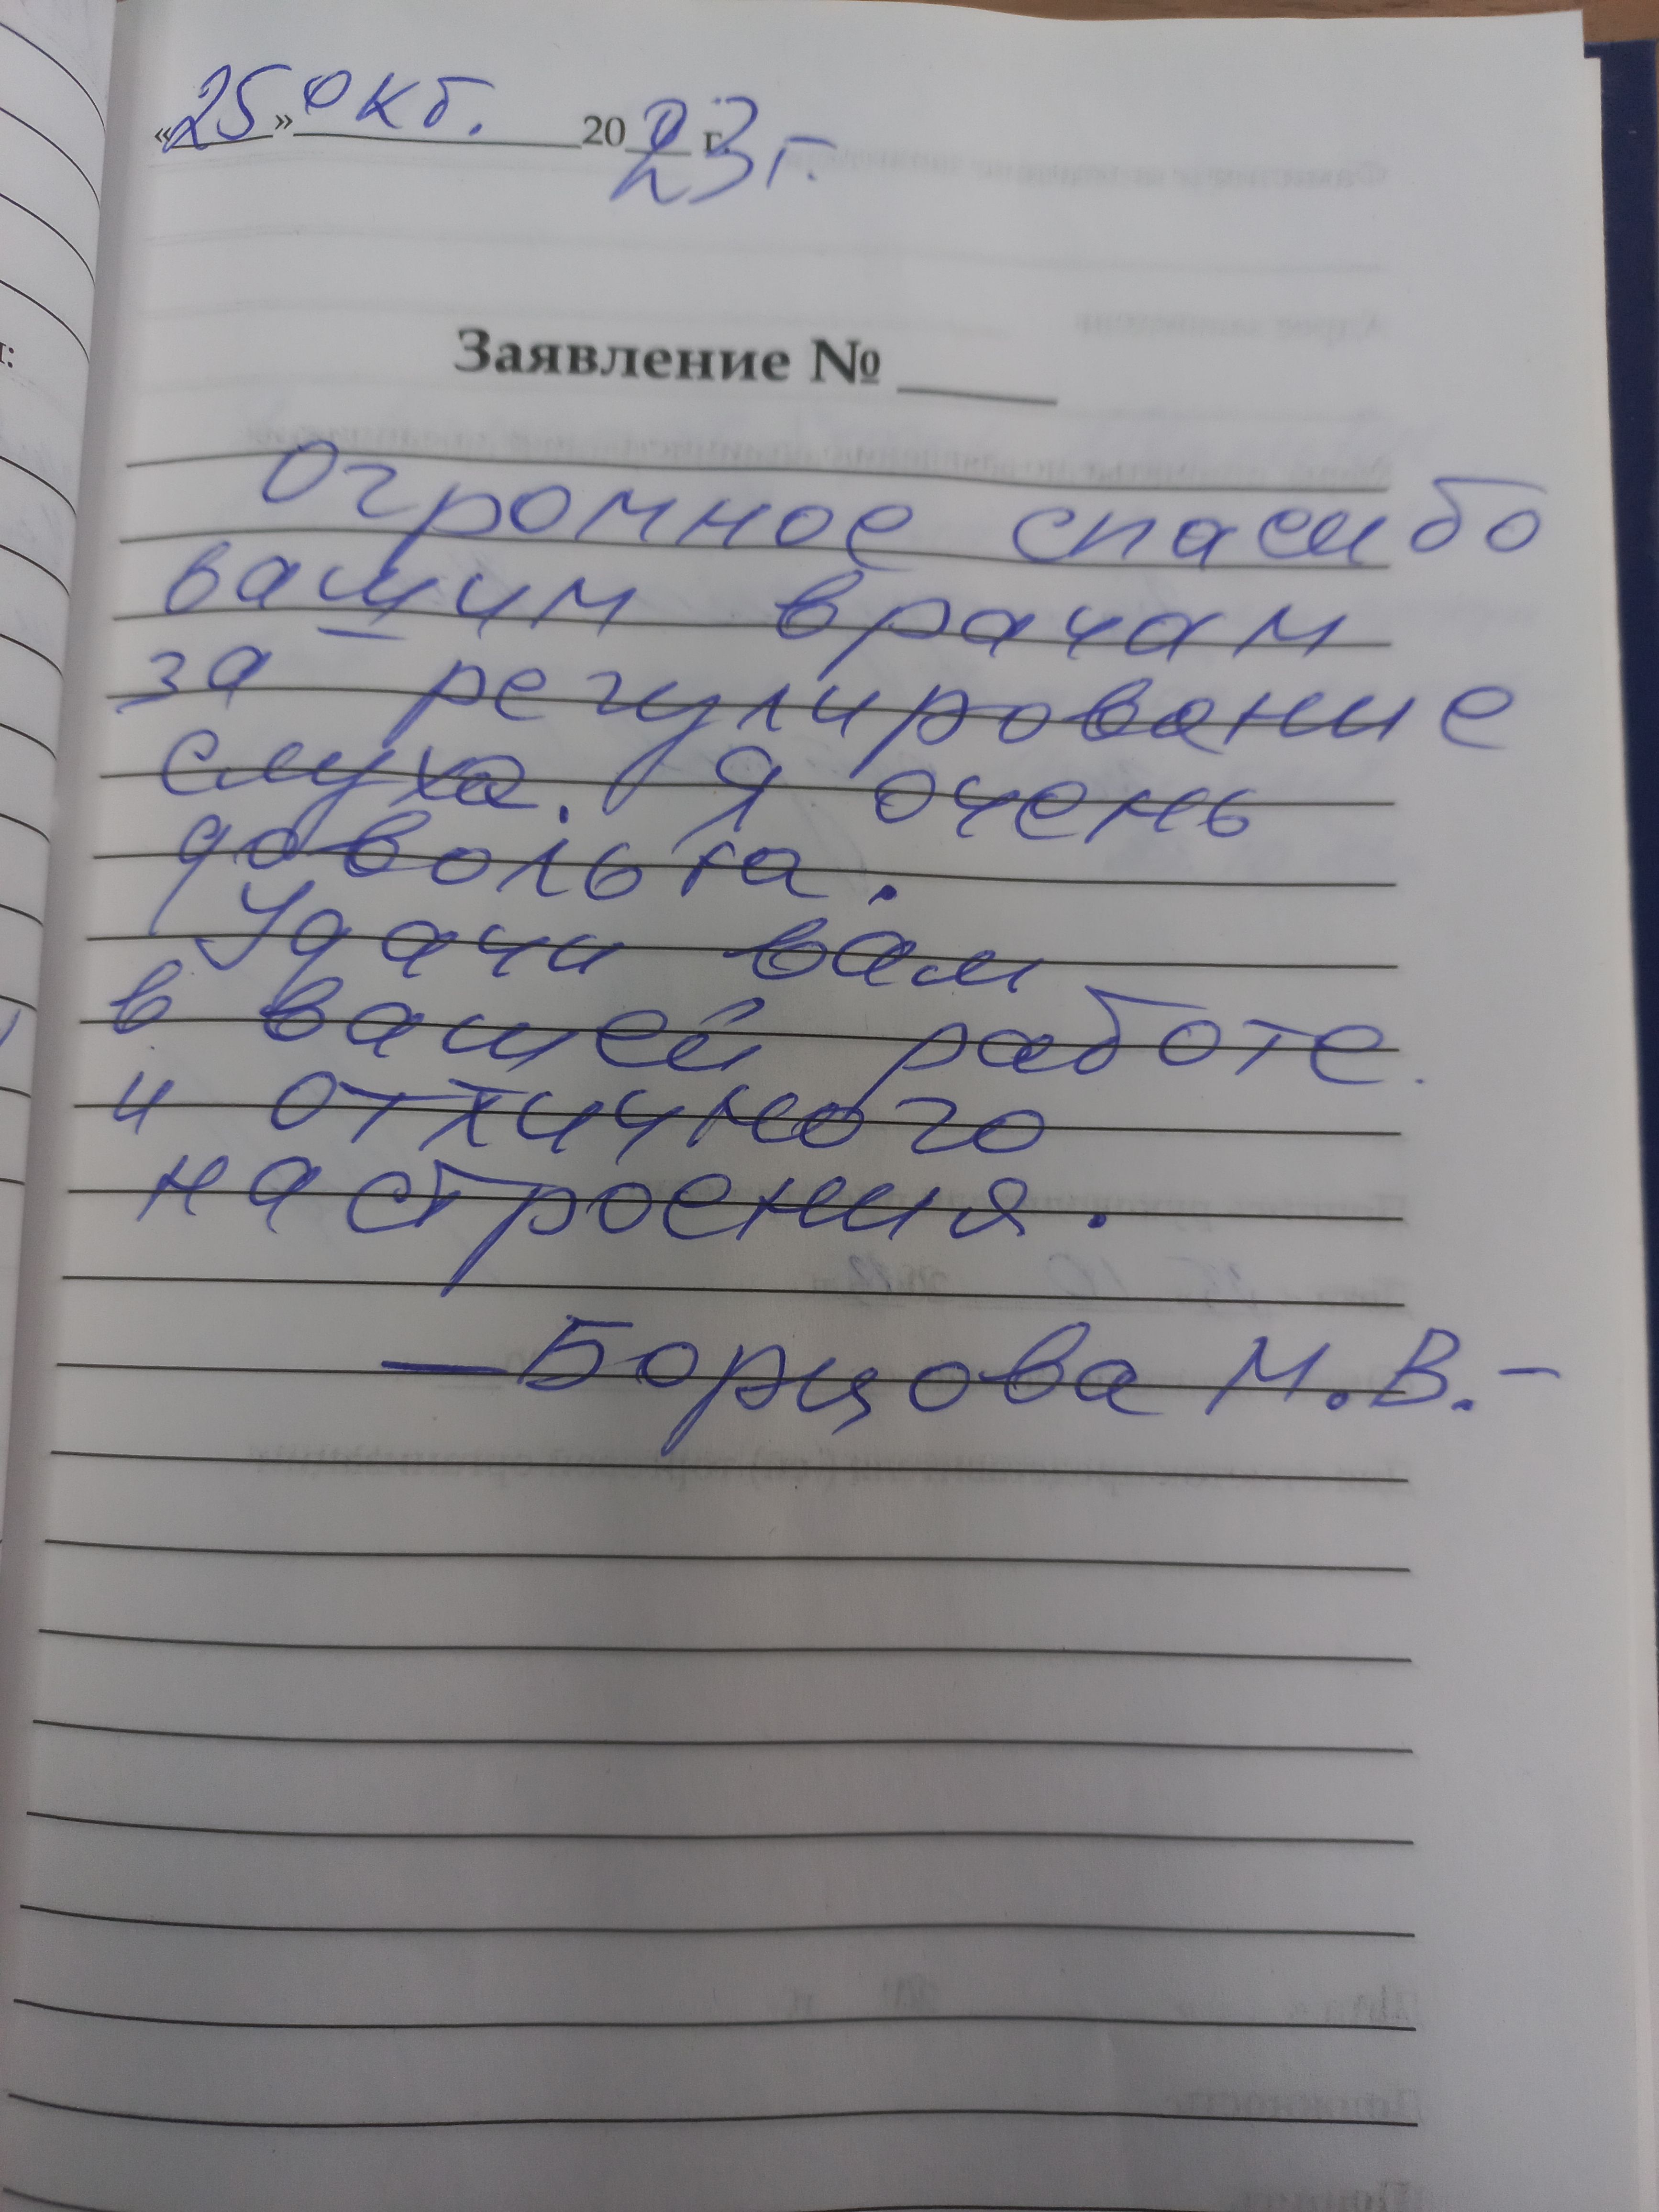 «25» окт. 2023 г. г.
Заявление № ____
Огромное спасибо
вашим врачам
за регулирование
слуха. Я очень
довольна.
Удачи вам
в вашей работе.
и отличного
настроения.
— Борцова М.В. –